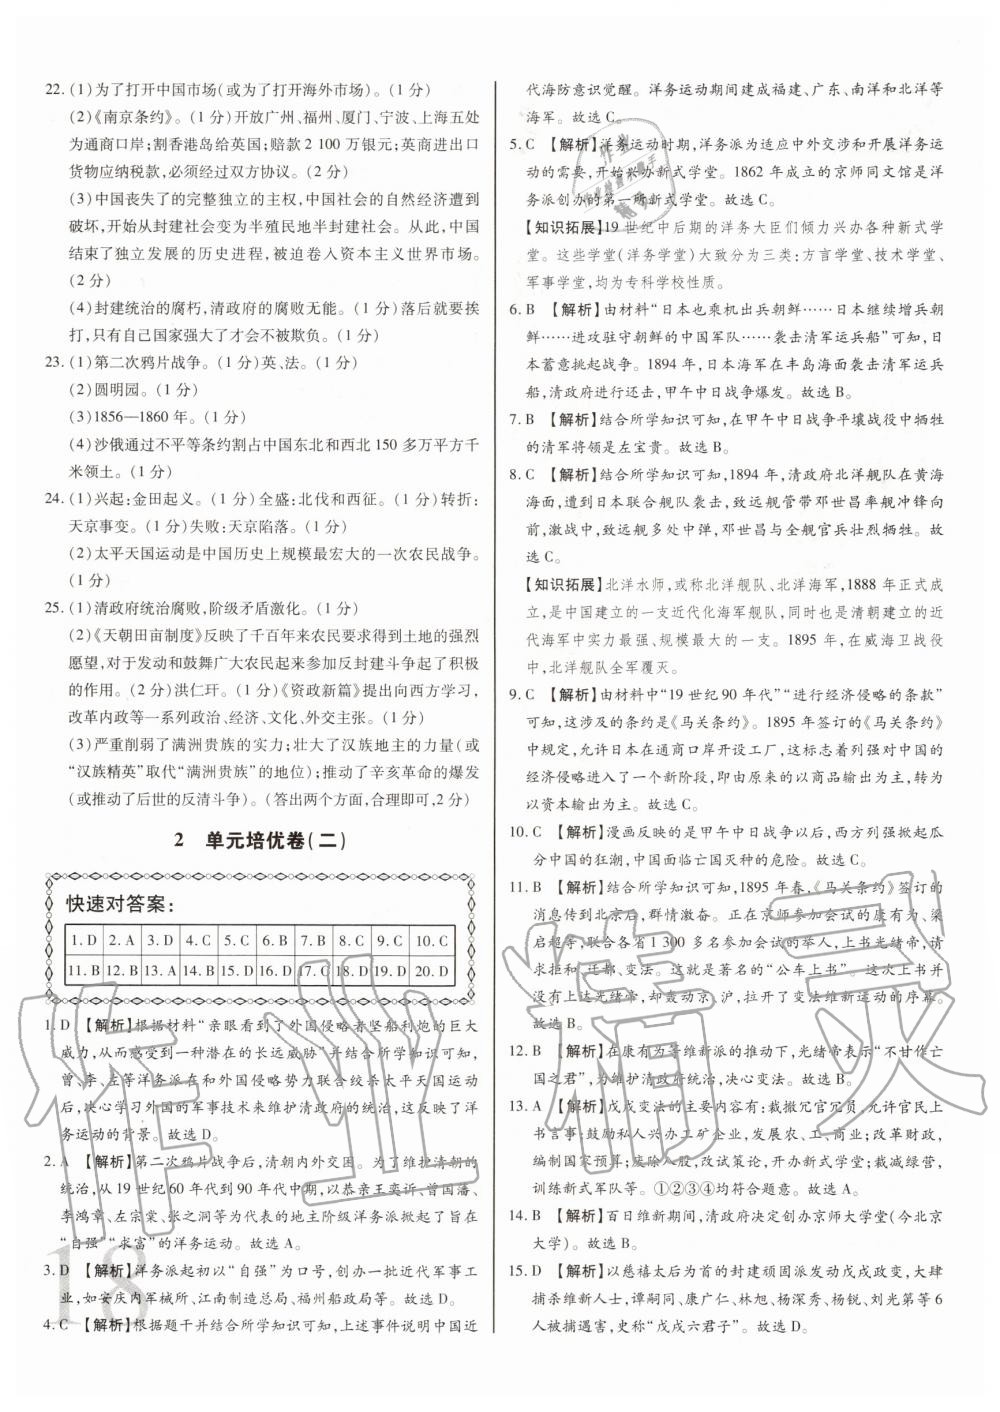 22. (1)为了打开中国市场(或为了打开海外市场)。(1 分)
(2)《南京条约》。(1 分)开放广州、福州、厦门、宁波、上海五处
为通商口岸;割香港岛给英国;赔款 2 100 万银元;英商进出口
货物应纳税款,必须经过双方协议。(2 分)
(3)中国丧失了的完整独立的主权,中国社会的自然经济遭到
破坏,开始从封建社会变为半殖民地半封建社会。从此,中国
结束了独立发展的历史进程,被迫卷入资本主义世界市场。
(2 分)
(4)封建统治的腐朽,清政府的腐败无能。(1 分)落后就要挨
打,只有自己国家强大了才会不被欺负。(1 分)
23. (1)第二次鸦片战争。(1 分)英、法。(1 分)
(2)圆明园。(1 分)
(3)1856—1860 年。(1 分)
(4)沙俄通过不平等条约割占中国东北和西北 150 多万平方千
米领土。(1 分)
24. (1)兴起:金田起义。(1 分)全盛:北伐和西征。(1 分)转折:
天京事变。(1 分)失败:天京陷落。(1 分)
(2)太平天国运动是中国历史上规模最宏大的一次农民战争。
(1 分)
25. (1)清政府统治腐败,阶级矛盾激化。(1 分)
(2)《天朝田亩制度》反映了千百年来农民要求得到土地的强烈
愿望,对于发动和鼓舞广大农民起来参加反封建斗争起了积极
的作用。(2 分)洪仁玕。(1 分)《资政新篇》提出向西方学习,
改革内政等一系列政治、经济、文化、外交主张。(1 分)
(3)严重削弱了满洲贵族的实力;壮大了汉族地主的力量(或
“汉族精英”取代“满洲贵族”的地位);推动了辛亥革命的爆发
(或推动了后世的反清斗争)。(答出两个方面,合理即可,2 分)
2 单元培优卷(二)
快速对答案:
1. D 2. A 3. D 4. C 5. C 6. B 7. B 8. C 9. C 10. C
11. B 12. B 13. A 14. B 15. D 16. B 17. C 18. D 19. D 20. D
1. D 【解析】根据材料“亲眼看到了外国侵略者坚船利炮的巨大
威力,从而感受到一种潜在的长远威胁”并结合所学知识可知,
曾、李、左等洋务派在和外国侵略势力联合绞杀太平天国运动
后,决心学习外国的军事技术来维护清政府的统治,这反映了洋
务运动的背景。故选 D。
2. A 【解析】第二次鸦片战争后,清朝内外交困。为了维护清朝的
统治,从 19 世纪 60 年代到 90 年代中期,以恭亲王奕䜣、曾国藩、
李鸿章、左宗棠、张之洞等为代表的地主阶级洋务派掀起了旨在
“自强”“求富”的洋务运动。故选 A。
3. D 【解析】洋务派起初以“自强”为口号,创办一批近代军事工
业,如安庆内军械所、江南制造总局、福州船政局等。故选 D。
4. C 【解析】根据题干并结合所学知识可知,上述事件说明中国近
18
代海防意识觉醒。洋务运动期间建成福建、广东、南洋和北洋等
海军。故选 C。
5. C 【解析】洋务运动时期,洋务派为适应中外交涉和开展洋务运
动的需要,开始兴办新式学堂。1862 年成立的京师同文馆是洋
务派创办的第一所新式学堂。故选 C。
【知识拓展】19 世纪中后期的洋务大臣们倾力兴办各种新式学
堂。这些学堂(洋务学堂)大致分为三类:方言学堂、技术学堂、
军事学堂,均为专科学校性质。
6. B 【解析】由材料“日本也乘机出兵朝鲜……日本继续增兵朝
鲜……进攻驻守朝鲜的中国军队……袭击清军运兵船”可知,日
本蓄意挑起战争。1894 年,日本海军在丰岛海面袭击清军运兵
船,清政府进行还击,甲午中日战争爆发。故选 B。
7. B 【解析】结合所学知识可知,在甲午中日战争平壤战役中牺牲
的清军将领是左宝贵。故选 B。
8. C 【解析】结合所学知识可知,1894 年,清政府北洋舰队在黄海
海面,遭到日本联合舰队袭击,致远舰管带邓世昌率舰冲锋向
前,激战中,致远舰多处中弹,邓世昌与全舰官兵壮烈牺牲。故
选 C。
【知识拓展】北洋水师,或称北洋舰队、北洋海军,1888 年正式成
立,是中国建立的一支近代化海军舰队,同时也是清朝建立的近
代海军中实力最强、规模最大的一支。1895 年,在威海卫战役
中,北洋舰队全军覆灭。
9. C 【解析】由材料中“19 世纪 90 年代”“进行经济侵略的条款”
可知,这涉及的条约是《马关条约》。1895 年签订的《马关条约》
中规定,允许日本在通商口岸开设工厂,这标志着列强对中国的
经济侵略进入了一个新阶段,即由原来的以商品输出为主,转为
以资本输出为主。故选 C。
10. C 【解析】漫画反映的是甲午中日战争以后,列强掀起瓜
分中国的狂潮,中国面临亡国灭种的危险。故选 C。
11. B 【解析】结合所学知识可知,1895 年春,《马关条约》签订的
消息传到北京后,群情激奋。正在京师参加会试的康有为、梁
启超等,联合各省 1 300 多名参加会试的举人,上书光绪帝,请
求拒和、迁都、变法。这就是著名的“公车上书”。这次上书并
没有到达光绪帝,却轰动京、沪,拉开了变法维新运动的序幕。
故选 B。
12. B 【解析】在康有为等维新派的推动下,光绪帝表示“不甘作亡
国之君”,为维护清政府统治,决心变法。故选 B。
13. A 【解析】戊戌变法的主要内容有:裁撤冗官冗员,允许官民上
书言事;鼓励私人兴办工矿企业,发展农、工、商业;改革财政,
编制国家预算;废除八股,改试策论,开办新式学堂;裁减绿营,
训练新式军队等。①②③④均符合题意。故选 A。
14. B 【解析】百日维新期间,清政府决定创办京师大学堂(今北京
大学)。故选 B。
15. D 【解析】以慈禧太后为首的封建顽固派发动戊戌政变,大肆
捕杀维新人士,谭嗣同、康广仁、林旭、杨深秀、杨锐、刘光第等 6
人被捕遇害,史称“戊戌六君子”。故选 D。
作业精灵